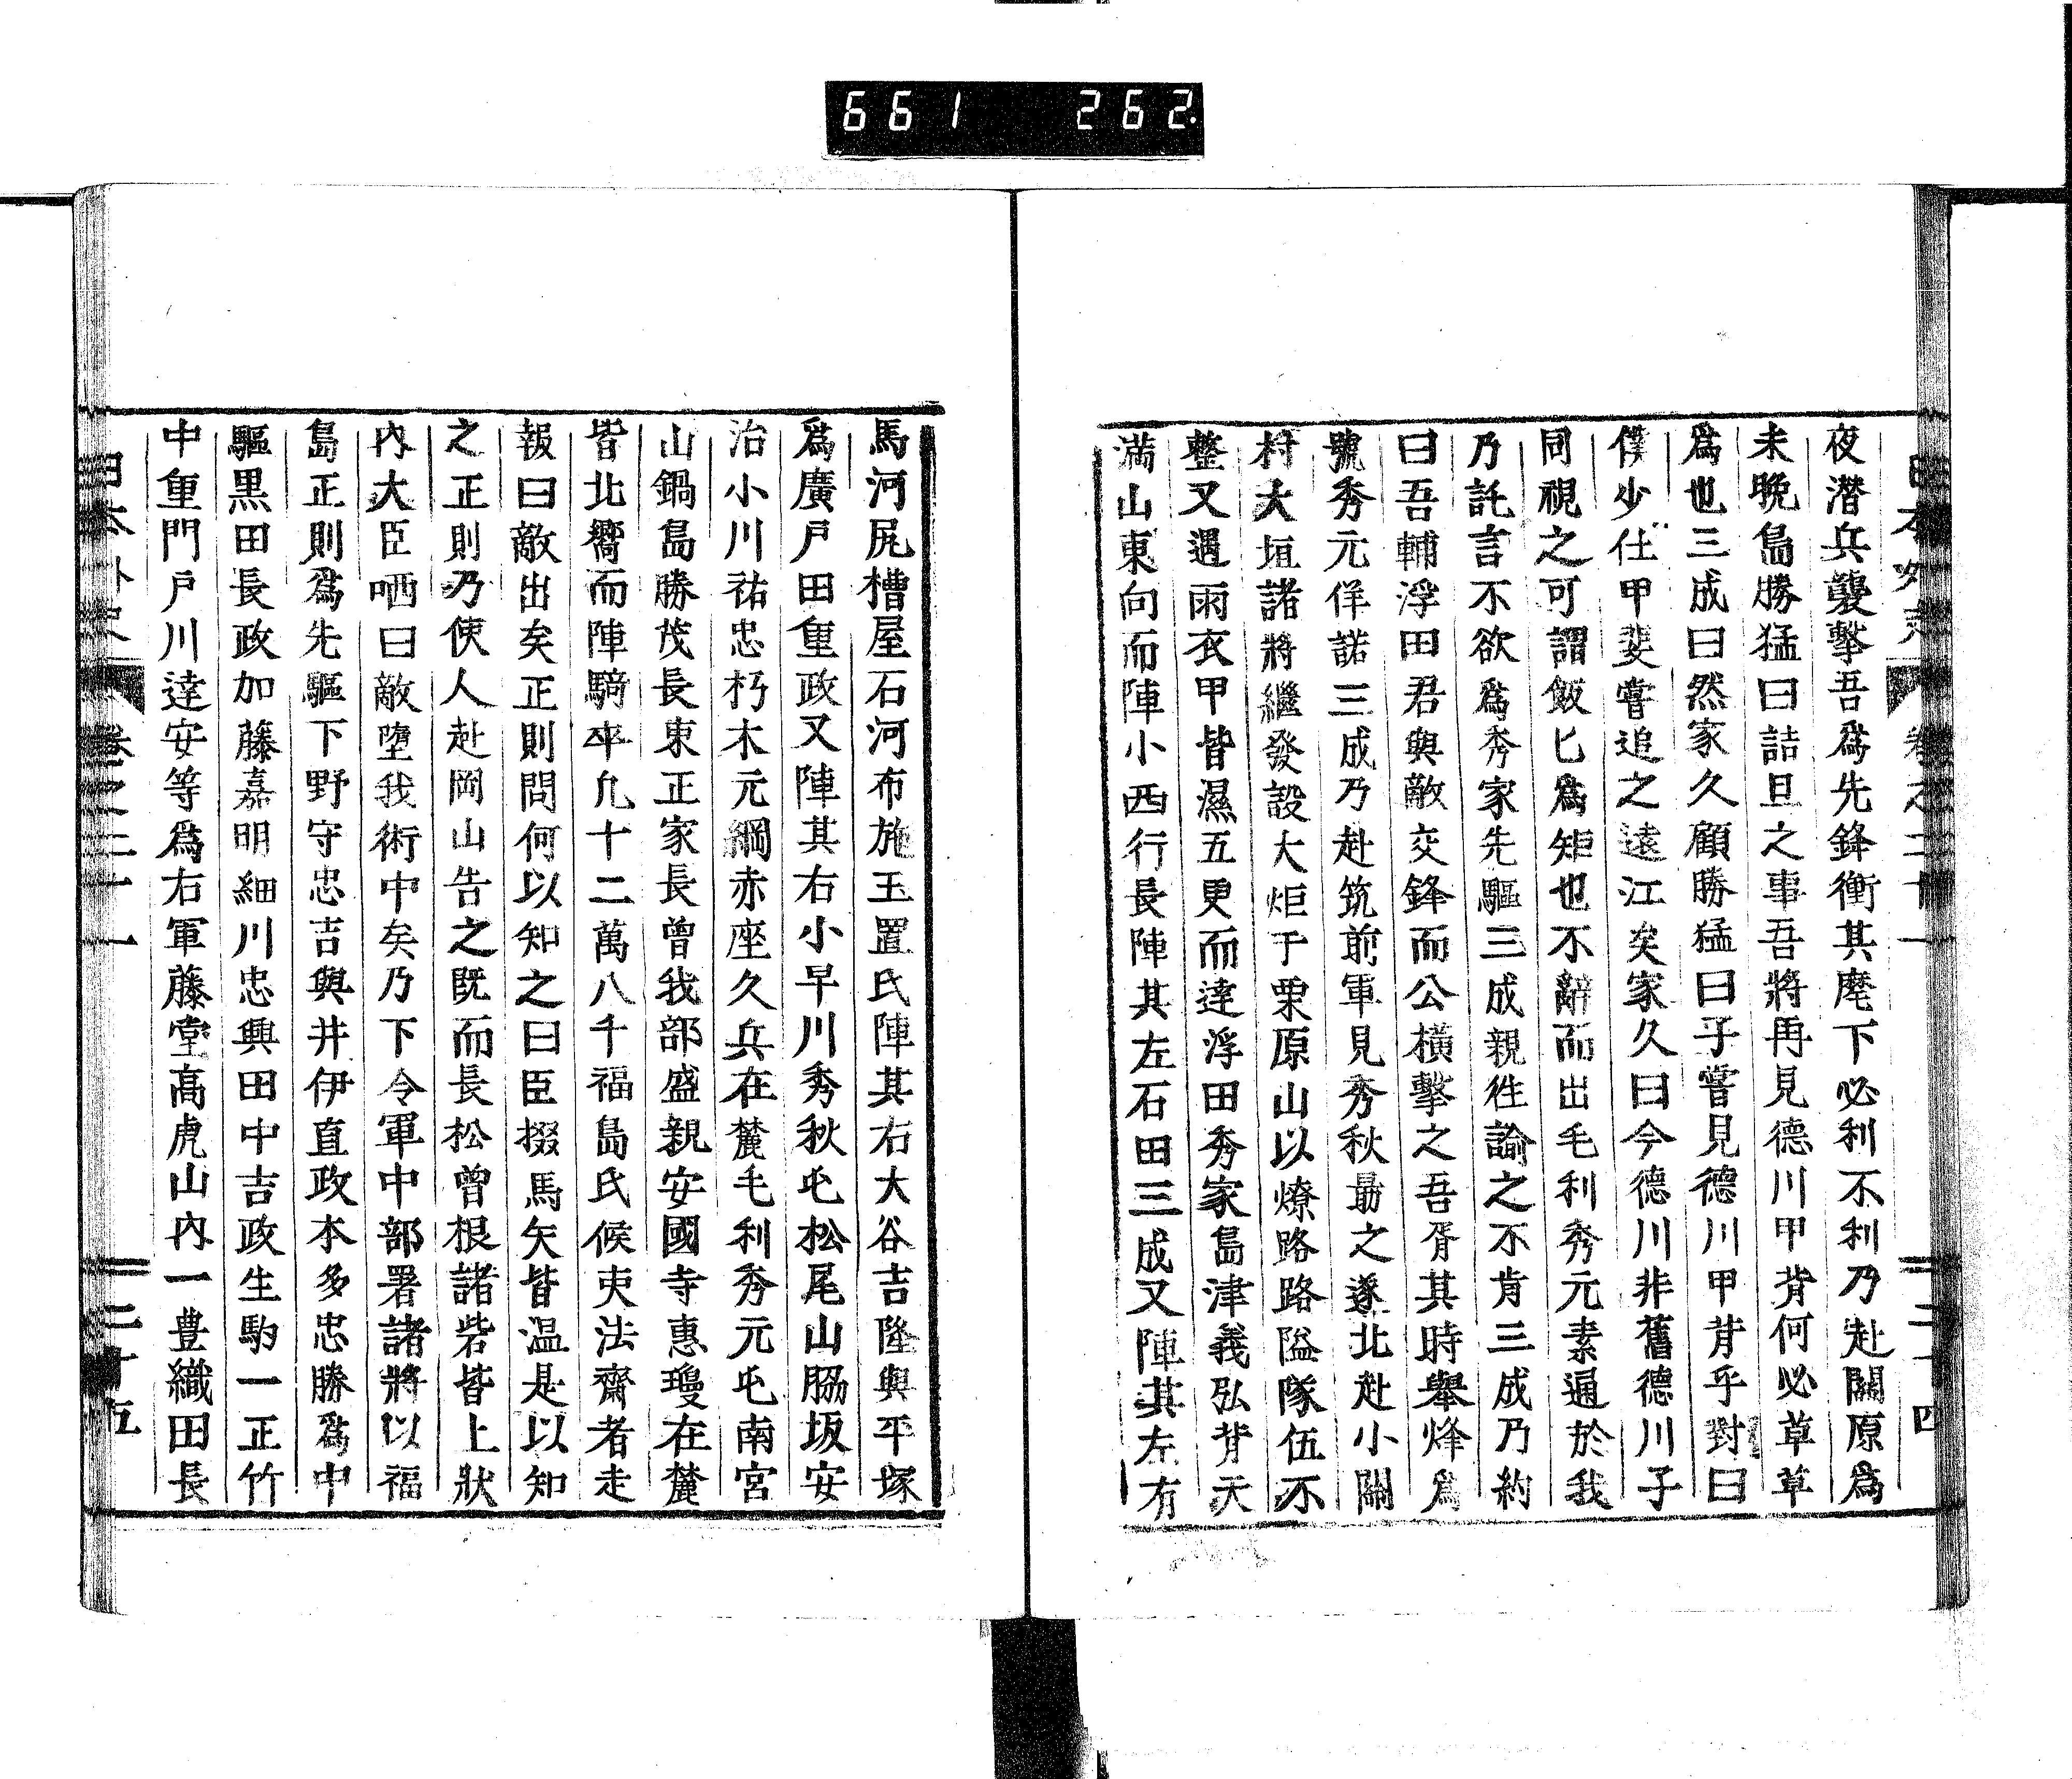 661 262.
日本外史 卷之二十一 二十四
夜潛兵襲擊吾爲先鋒衝其麾下必利不利乃赴關原爲
未晚島勝猛曰詰旦之事吾將再見德川甲背何必草草
爲也三成曰然家久顧勝猛曰子嘗見德川甲背乎對曰
僕少仕甲斐嘗追之遠江矣家久曰今德川非舊德川子
同視之可謂飯匕爲矩也不辭而出毛利秀元素通於我
乃託言不欲爲秀家先驅三成親徃諭之不肯三成乃約
曰吾輔浮田君與敵交鋒而公橫擊之吾胥其時舉烽爲
號秀元佯諾三成乃赴筑前軍見秀秋勗之遂北赴小關
村大垣諸將繼發設大炬于栗原山以燎路路隘隊伍不
整又遇雨衣甲皆濕五更而達浮田秀家島津義弘背天
滿山東向而陣小西行長陣其左石田三成又陣其左有
馬河尻槽屋石河布施玉置氏陣其右大谷吉隆與平塚
爲廣戶田重政又陣其右小早川秀秋屯松尾山脇坂安
治小川祐忠朽木元綱赤座久兵在麓毛利秀元屯南宮
山鍋島勝茂長束正家長曾我部盛親安國寺惠瓊在麓
皆北嚮而陣騎卒凡十二萬八千福島氏候吏法齋者走
報曰敵出矣正則問何以知之曰臣掇馬矢皆温是以知
之正則乃使人赴岡山告之既而長松曾根諸砦皆上狀
內大臣哂曰敵墮我術中矣乃下令軍中部署諸將以福
島正則爲先驅下野守忠吉與井伊直政本多忠勝爲中
驅黒田長政加藤嘉明細川忠興田中吉政生駒一正竹
中重門戶川逵安等爲右軍藤堂高虎山內一豊織田長
日本外史 卷之二十一 二十五